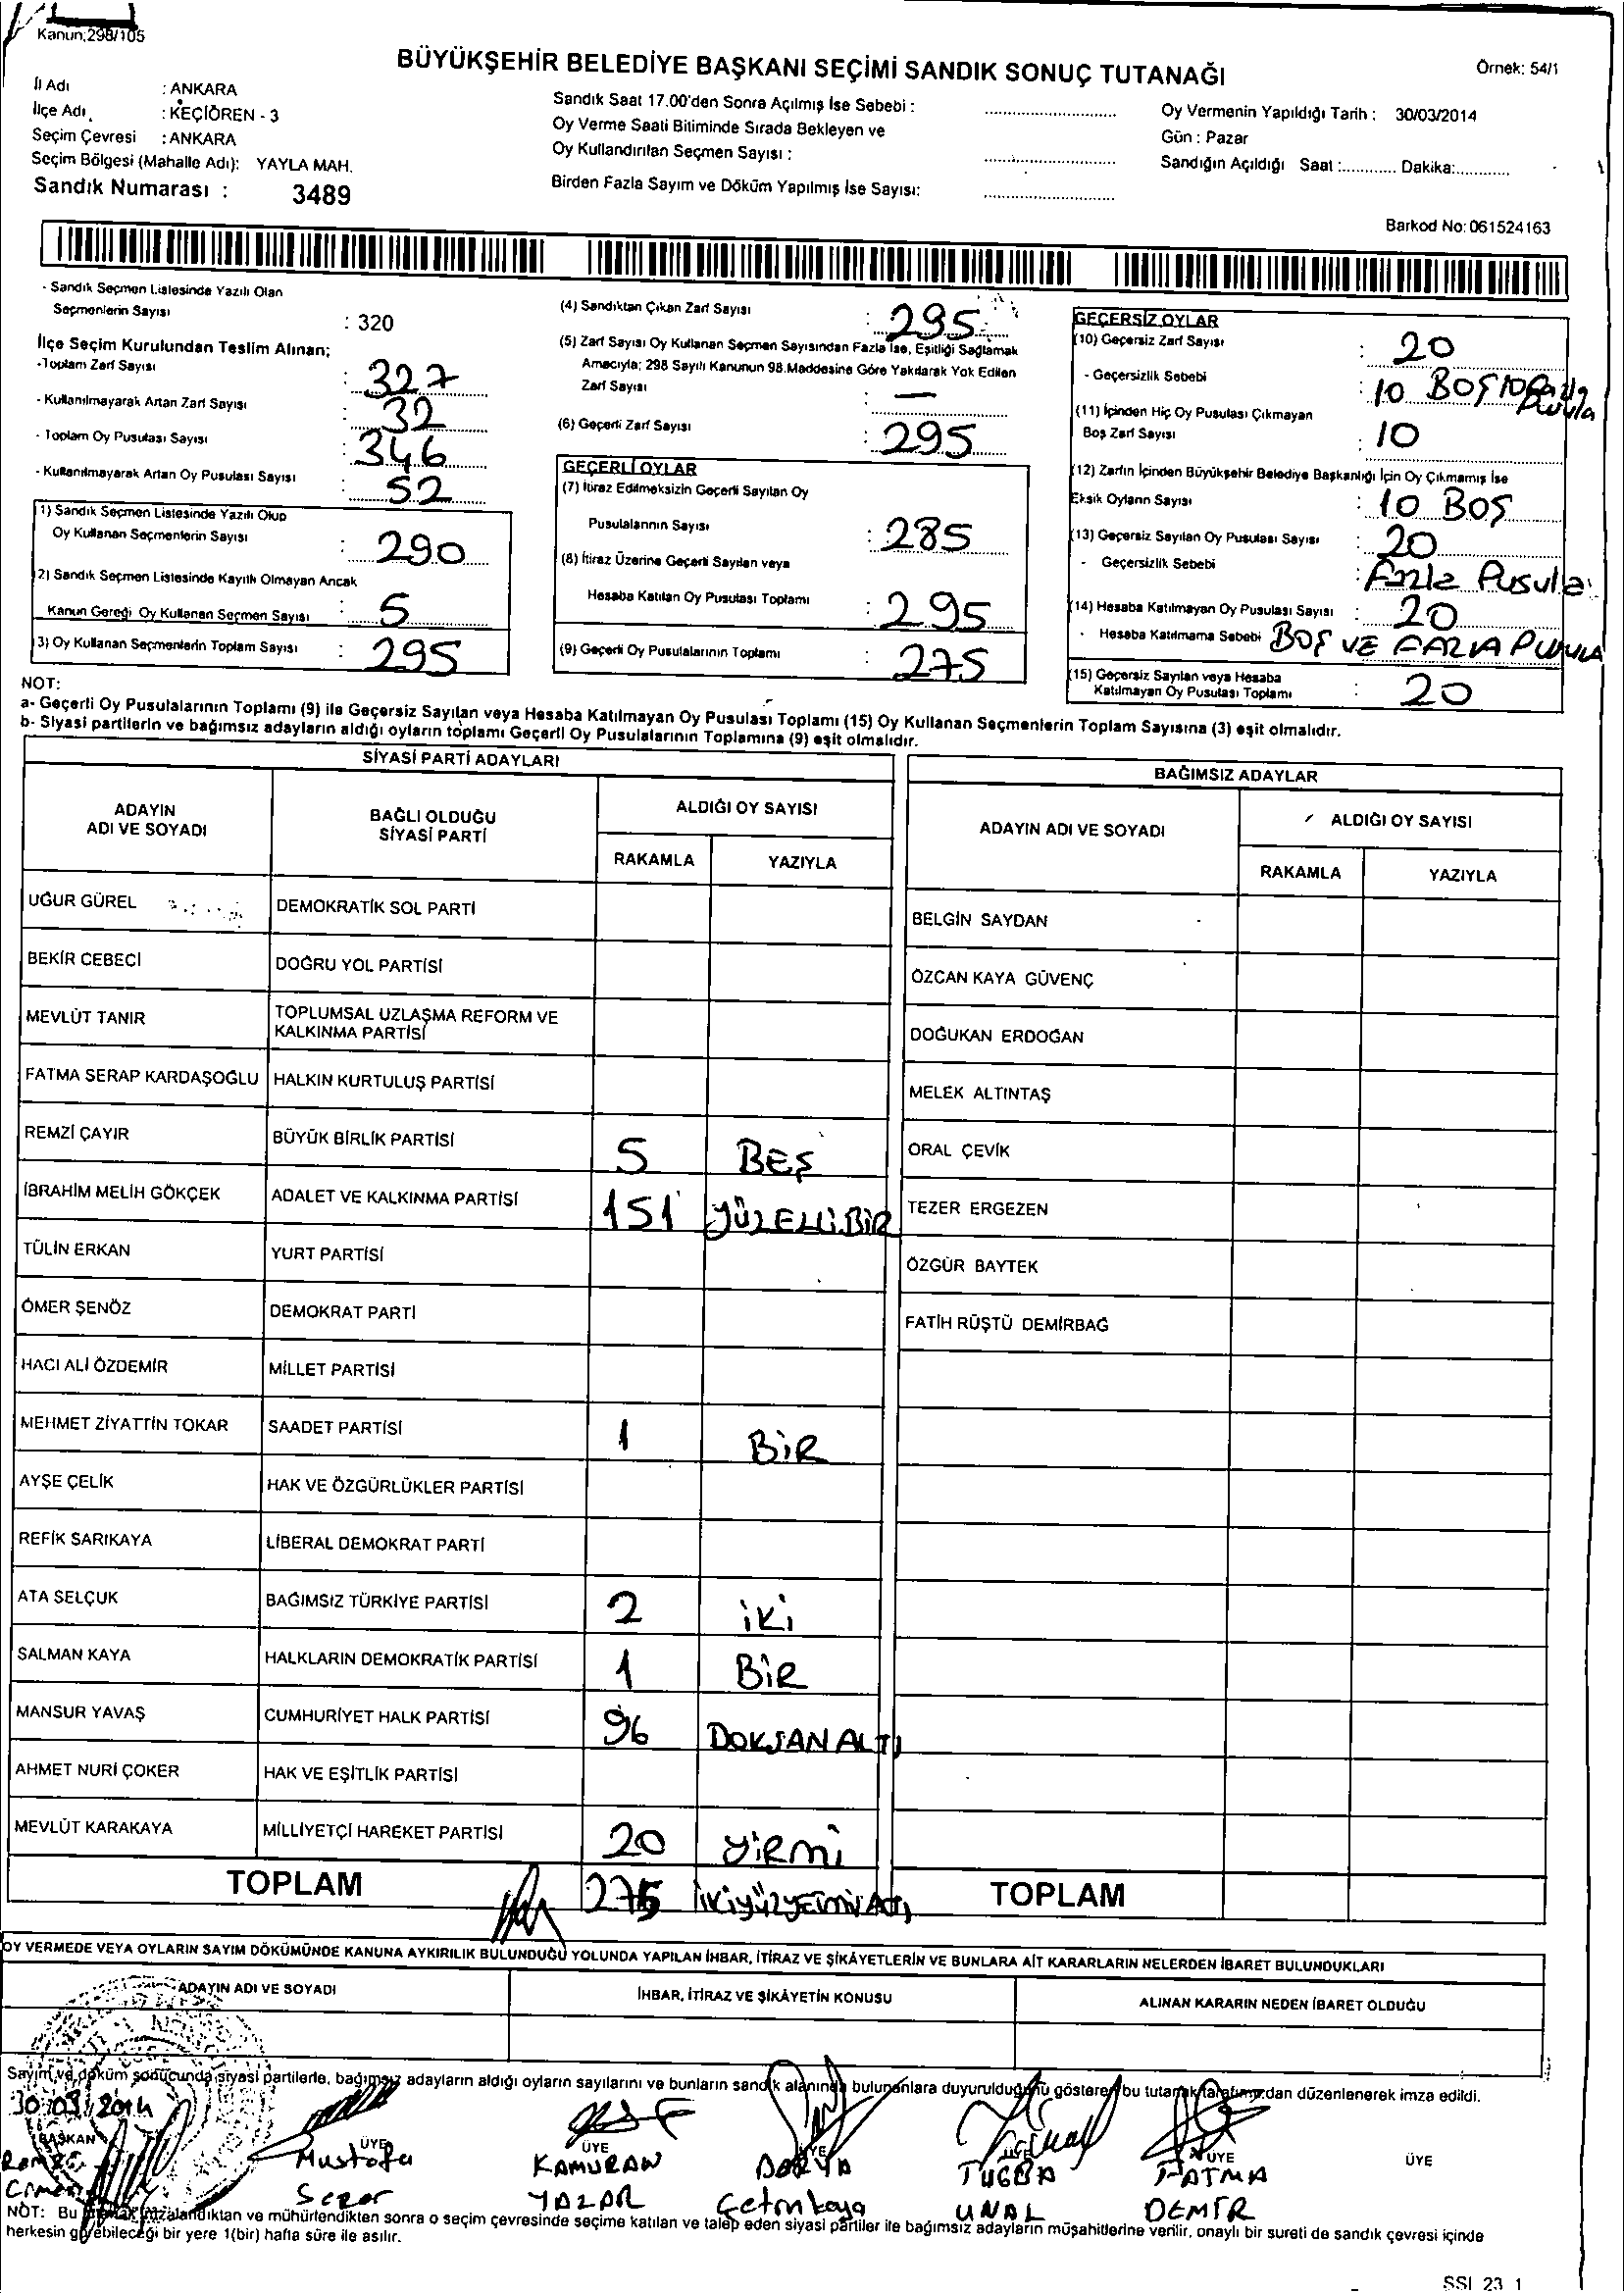 Kanun;298/105
BÜYÜKŞEHİR BELEDİYE BAŞKANI SEÇİMİ SANDIK SONUÇ TUTANAĞI
Örnek: 54/1
İl Adı : ANKARA
İlçe Adı : KEÇİÖREN - 3
Seçim Çevresi : ANKARA
Seçim Bölgesi (Mahalle Adı): YAYLA MAH.
Sandık Numarası : 3489
Sandık Saat 17.00'den Sonra Açılmış İse Sebebi :
Oy Verme Saati Bitiminde Sırada Bekleyen ve
Oy Kullandırılan Seçmen Sayısı :
Birden Fazla Sayım ve Döküm Yapılmış İse Sayısı:
Oy Vermenin Yapıldığı Tarih : 30/03/2014
Gün : Pazar
Sandığın Açıldığı Saat :............ Dakika:............
Barkod No: 061524163
- Sandık Seçmen Listesinde Yazılı Olan
Seçmenlerin Sayısı : 320
İlçe Seçim Kurulundan Teslim Alınan;
-Toplam Zarf Sayısı : 327
- Kullanılmayarak Artan Zarf Sayısı : 32
- Toplam Oy Pusulası Sayısı : 346
- Kullanılmayarak Artan Oy Pusulası Sayısı : 52
(1) Sandık Seçmen Listesinde Yazılı Olup
Oy Kullanan Seçmenlerin Sayısı : 290
2) Sandık Seçmen Listesinde Kayıtlı Olmayan Ancak
Kanun Gereği Oy Kullanan Seçmen Sayısı : 5
3) Oy Kullanan Seçmenlerin Toplam Sayısı : 295
(4) Sandıktan Çıkan Zarf Sayısı : 295
(5) Zarf Sayısı Oy Kullanan Seçmen Sayısından Fazla İse, Eşitliği Sağlamak
Amacıyla; 298 Sayılı Kanunun 98.Maddesine Göre Yakılarak Yok Edilen
Zarf Sayısı : —
(6) Geçerli Zarf Sayısı : 295
GEÇERLİ OYLAR
(7) İtiraz Edilmeksizin Geçerli Sayılan Oy
Pusulalarının Sayısı : 285
(8) İtiraz Üzerine Geçerli Sayılan veya
Hesaba Katılan Oy Pusulası Toplamı : 295
(9) Geçerli Oy Pusulalarının Toplamı : 275
GEÇERSİZ OYLAR
(10) Geçersiz Zarf Sayısı : 20
- Geçersizlik Sebebi : 10 BOŞ 10 Fazla Pusula
(11) İçinden Hiç Oy Pusulası Çıkmayan
Boş Zarf Sayısı : 10
(12) Zarfın İçinden Büyükşehir Belediye Başkanlığı İçin Oy Çıkmamış İse
Eksik Oyların Sayısı : 10 BOŞ
(13) Geçersiz Sayılan Oy Pusulası Sayısı : 20
- Geçersizlik Sebebi : Fazla Pusula
(14) Hesaba Katılmayan Oy Pusulası Sayısı : 20
- Hesaba Katılmama Sebebi BOŞ VE FAZLA PUSULA
(15) Geçersiz Sayılan veya Hesaba
Katılmayan Oy Pusulası Toplamı : 20
NOT:
a- Geçerli Oy Pusulalarının Toplamı (9) ile Geçersiz Sayılan veya Hesaba Katılmayan Oy Pusulası Toplamı (15) Oy Kullanan Seçmenlerin Toplam Sayısına (3) eşit olmalıdır.
b- Siyasi partilerin ve bağımsız adayların aldığı oyların toplamı Geçerli Oy Pusulalarının Toplamına (9) eşit olmalıdır.
SİYASİ PARTİ ADAYLARI
ADAYIN ADI VE SOYADI
BAĞLI OLDUĞU SİYASİ PARTİ
ALDIĞI OY SAYISI
RAKAMLA YAZIYLA
UĞUR GÜREL DEMOKRATİK SOL PARTİ
BEKİR CEBECİ DOĞRU YOL PARTİSİ
MEVLÜT TANIR TOPLUMSAL UZLAŞMA REFORM VE KALKINMA PARTİSİ
FATMA SERAP KARDAŞOĞLU HALKIN KURTULUŞ PARTİSİ
REMZİ ÇAYIR BÜYÜK BİRLİK PARTİSİ 5 BEŞ
İBRAHİM MELİH GÖKÇEK ADALET VE KALKINMA PARTİSİ 151 YÜZELLİBİR
TÜLİN ERKAN YURT PARTİSİ
ÖMER ŞENÖZ DEMOKRAT PARTİ
HACI ALİ ÖZDEMİR MİLLET PARTİSİ
MEHMET ZİYATTİN TOKAR SAADET PARTİSİ 1 BİR
AYŞE ÇELİK HAK VE ÖZGÜRLÜKLER PARTİSİ
REFİK SARIKAYA LİBERAL DEMOKRAT PARTİ
ATA SELÇUK BAĞIMSIZ TÜRKİYE PARTİSİ 2 İKİ
SALMAN KAYA HALKLARIN DEMOKRATİK PARTİSİ 1 BİR
MANSUR YAVAŞ CUMHURİYET HALK PARTİSİ 96 DOKSANALTI
AHMET NURİ ÇOKER HAK VE EŞİTLİK PARTİSİ
MEVLÜT KARAKAYA MİLLİYETÇİ HAREKET PARTİSİ 20 YİRMİ
TOPLAM
BAĞIMSIZ ADAYLAR
ADAYIN ADI VE SOYADI
ALDIĞI OY SAYISI
RAKAMLA YAZIYLA
BELGİN SAYDAN
ÖZCAN KAYA GÜVENÇ
DOĞUKAN ERDOĞAN
MELEK ALTINTAŞ
ORAL ÇEVİK
TEZER ERGEZEN
ÖZGÜR BAYTEK
FATİH RÜŞTÜ DEMİRBAĞ
TOPLAM
OY VERMEDE VEYA OYLARIN SAYIM DÖKÜMÜNDE KANUNA AYKIRILIK BULUNDUĞU YOLUNDA YAPILAN İHBAR, İTİRAZ VE ŞİKÂYETLERİN VE BUNLARA AİT KARARLARIN NELERDEN İBARET BULUNDUKLARI
ADAYIN ADI VE SOYADI
İHBAR, İTİRAZ VE ŞİKÂYETİN KONUSU
ALINAN KARARIN NEDEN İBARET OLDUĞU
Sayım ve döküm sonucunda siyasi partilerle, bağımsız adayların aldığı oyların sayılarını ve bunların sandık alanında bulunanlara duyurulduğunu gösteren bu tutanak tarafımızdan düzenlenerek imza edildi.
30.03.2014
BAŞKAN ÜYE ÜYE ÜYE ÜYE ÜYE ÜYE
Mustafa KAMURAN DERYA TUĞBA FATMA
Sezer YAZAR Çetinkaya UNAL DEMİR
NOT: Bu tutanak imzalandıktan ve mühürlendikten sonra o seçim çevresinde seçime katılan ve talep eden siyasi partiler ile bağımsız adayların müşahitlerine verilir, onaylı bir sureti de sandık çevresi içinde
herkesin görebileceği bir yere 1(bir) hafta süre ile asılır.
SSI 23 1